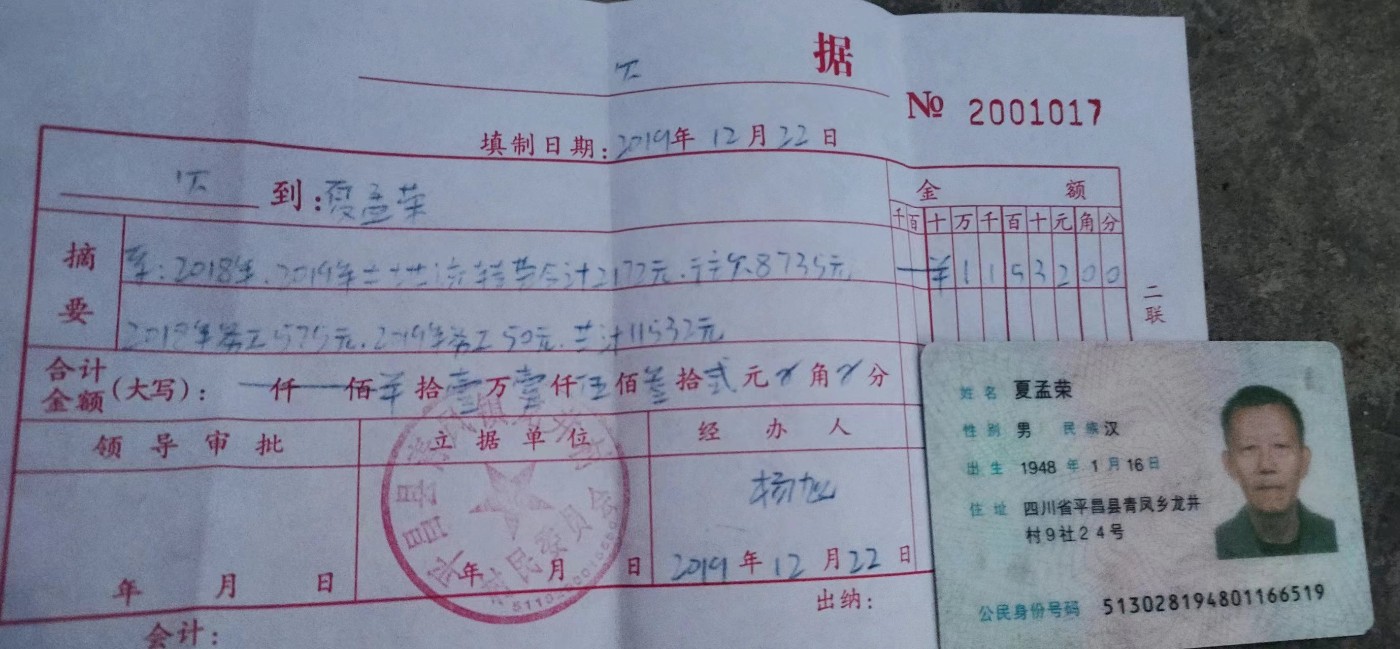 欠 据
№ 2001017
填制日期:2019年 12月 22日
欠 到:夏孟荣
金 额
千百十万千百十元角分
摘要
2018年、2019年土地流转费合计2172元
8735元
¥1153200
2018年务工575元、2019年务工50元、共计11532元
二联
合计金额(大写): 仟 佰 拾壹万壹仟伍佰叁拾贰元 角 分
领导审批
立据单位
经办人
杨旭
年 月 日
年 月 日
2019年12月22日
村民委员会
会计:
出纳:
姓名 夏孟荣
性别 男 民族 汉
出生 1948年1月16日
住址 四川省平昌县青凤乡龙井
村9社24号
公民身份号码 513028194801166519